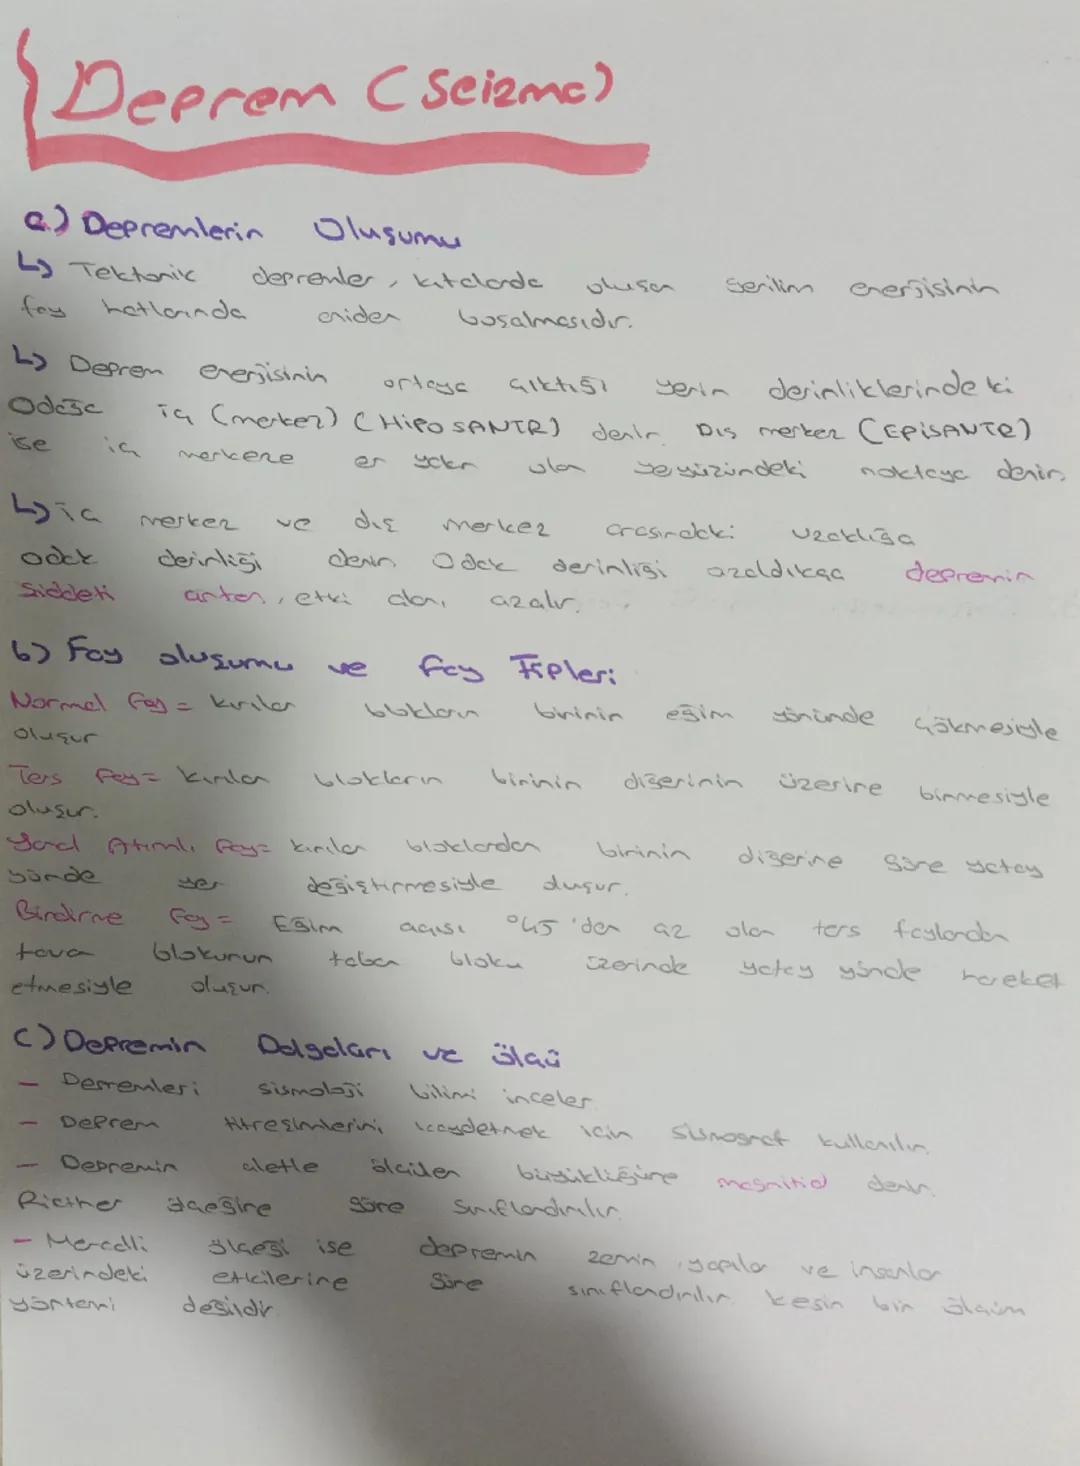 Deprem (Seizma)
a) Depremlerin Oluşumu
↳ Tektonik depremler, kıtalarda oluşan gerilim enerjisinin
fay hatlarında aniden boşalmasıdır.
↳ Deprem enerjisinin ortaya çıktığı yerin derinliklerindeki
Odağa iç (merkez) (HİPOSANTR) denir. Dış merkez (EPİSANTR)
ise iç merkeze en yakın olan yeryüzündeki noktaya denir.
↳ iç merkez ve dış merkez arasındaki uzaklığa
odak derinliği denir. Odak derinliği azaldıkça depremin
şiddeti artar, etki alanı azalır.
b) Fay oluşumu ve Fay Tipleri
Normal Fay = kırılan blokların birinin eğim yönünde çökmesiyle
oluşur
Ters Fay = kırılan blokların birinin diğerinin üzerine binmesiyle
oluşur.
Yanal Atımlı Fay = kırılan bloklardan birinin diğerine göre yatay
yönde yer değiştirmesiyle oluşur.
Bindirme Fay = Eğim açısı °45'den az olan ters faylardan
tavan blokunun taban bloku üzerinde yatay yönde hareket
etmesiyle oluşur.
C) Depremin Dalgaları ve ölçü
- Depremleri sismoloji bilimi inceler.
- Deprem titreşimlerini kaydetmek için sismograf kullanılır.
- Depremin aletle ölçülen büyüklüğüne magnitid denir.
Ricther ölçeğine göre sınıflandırılır.
- Mercalli ölçeği ise depremin zemin, yapılar ve insanlar
üzerindeki etkilerine göre sınıflandırılır. kesin bir ölçüm
yöntemi değildir.